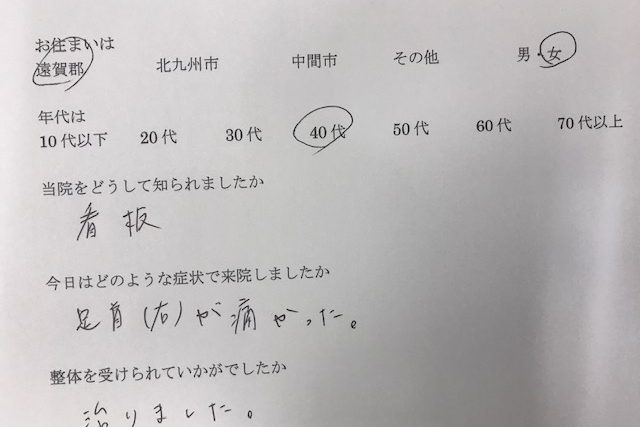 お住まいは
遠賀郡 北九州市 中間市 その他 男・女
年代は
10代以下 20代 30代 40代 50代 60代 70代以上
当院をどうして知られましたか
看板
今日はどのような症状で来院しましたか
足首(右)が痛かった。
整体を受けられていかがでしたか
治りました。